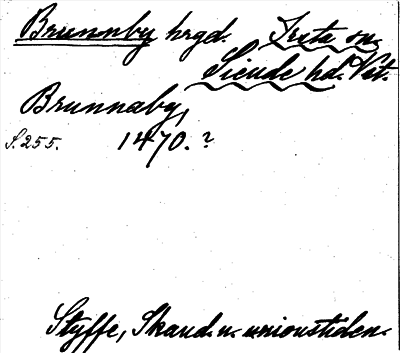 Brunnby hrgd. Irsta sn.
Siende hd. Vst.
Brunnaby,
S. 255. 1470.?
Styffe, Skand. u. unionstiden.